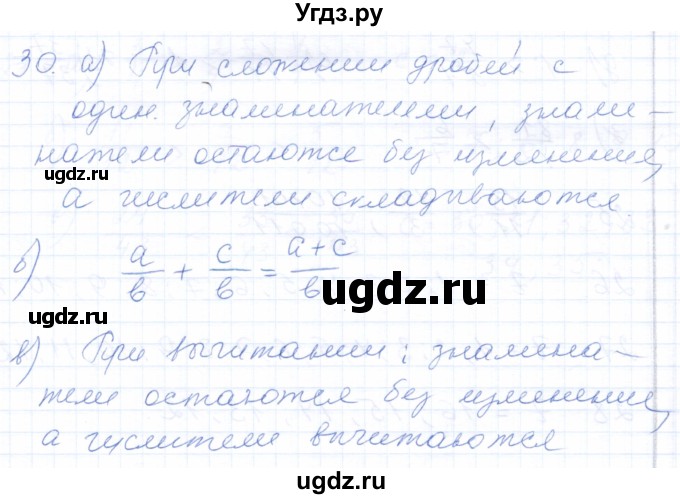 Угдз.ру
30. а) При сложении дробей с
один. знаминателями, знами-
натели остаются без изменения,
uгдз.ru
а числители складываются.
б) a/в + c/в = a+c/в
uгдз.ru
uгдз.ru
в) При вычитании: знамена-
тели остаются без изменения,
а числители вычитаются
uгдз.ru